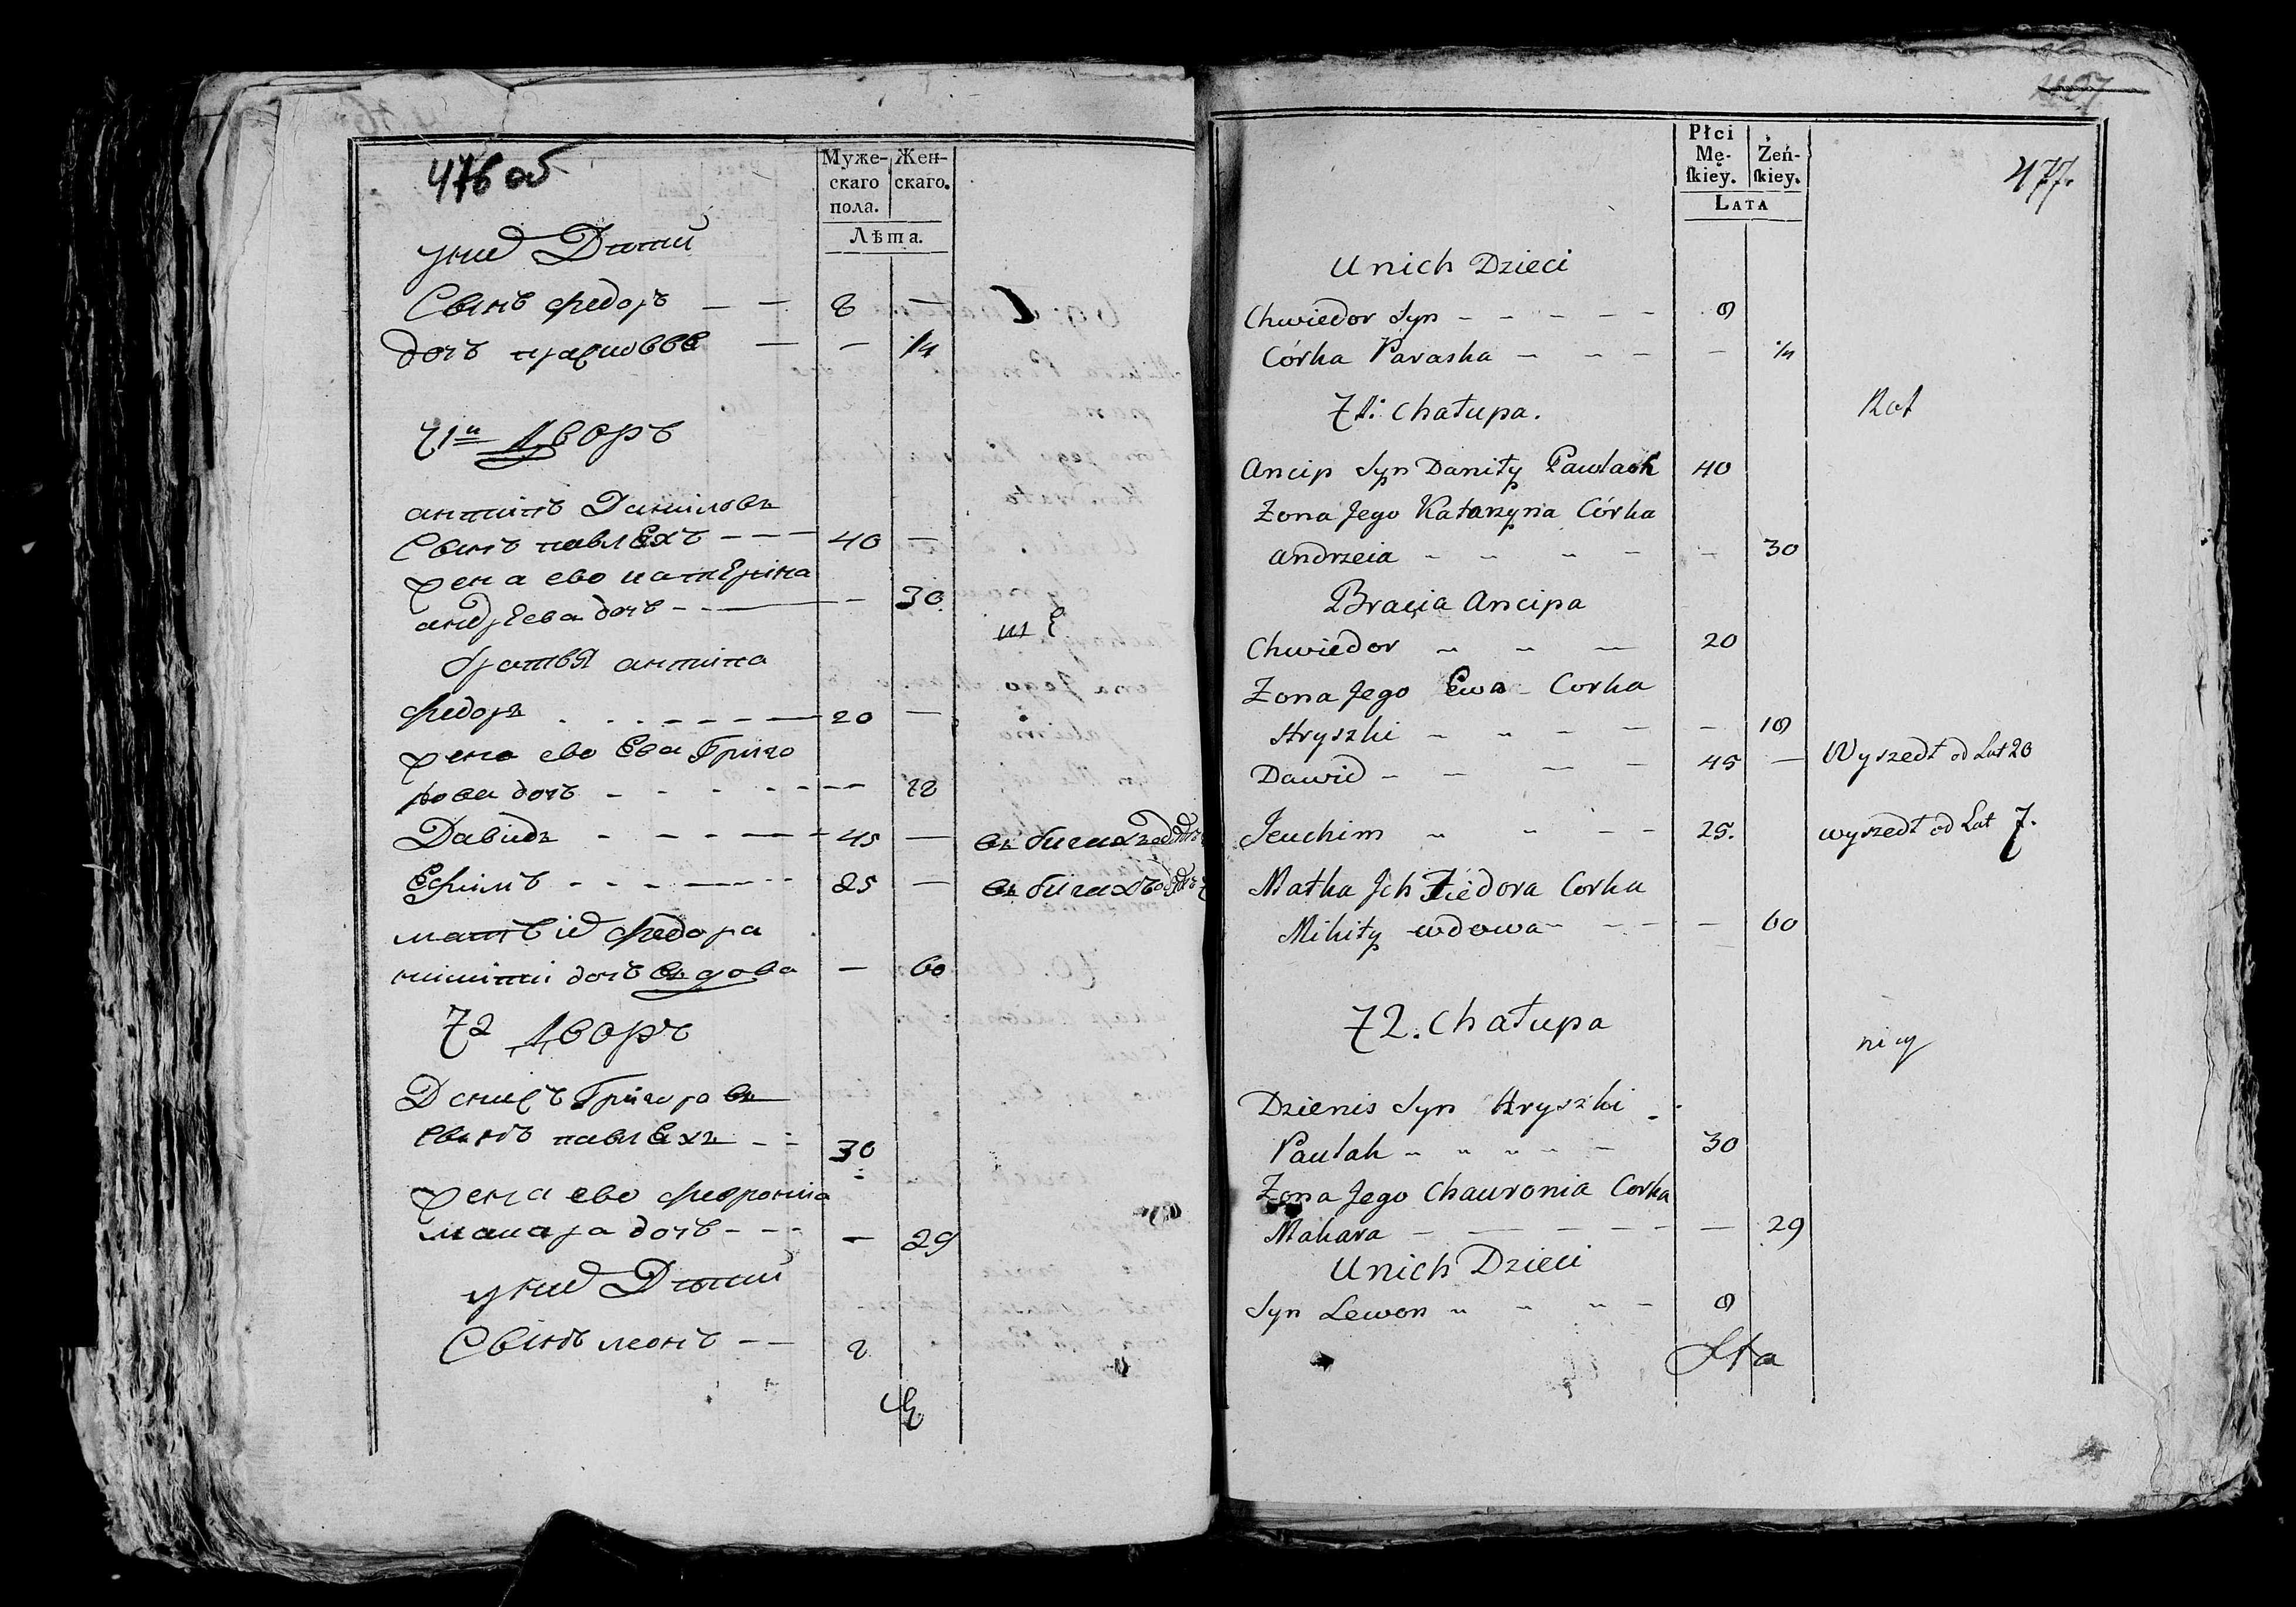 476 об
Муже-
скаго
пола.
Жен-
скаго.
Лѣта.
у них Дѣтей
Сынъ Федоръ — — 8 —
дочь — — 1/4
71й Дворъ
антипъ Даниловъ
Сынъ павлюкъ - - - 40 —
жена ево катерина
андреева дочь - — — 30
братья антипа
Федоръ . . . - - - - 20 —
жена ево Ева Григо
рова дочь - - - - - 18
Давидъ - - - - - 45 — въ бегахъ
Ефимъ - - - - - 25 — въ бегахъ
мать их федора
никити дочь вдова — 60
72 Дворъ
Денисъ Григоровъ
Сынъ павлюкъ - - 30
жена ево февронiя
макара дочь - - - — 29
у них Дѣтей
Сынъ леонъ - — 8
477.
Płci
Mę-
ſkiey.
Żeń-
ſkiey.
LATA
U nich Dzieci
Chwiedor Syn - - - - - 8
Córka Paraska - - - — 1/4
71: Chałupa.
Ancip Syn Daniły Pawlack 40
Zona Jego Katarzyna Córka
Andrzeia - - - - — 30
Bracia Ancipa
Chwiedor - - — 20
Zona Jego Ewa Corka
Hryszki - - - - — 18
Dawid - - - - 45 — Wyszedł od Lat 20
Jeuchim - - - - 25. wyszedł od Lat 7.
Matka Ich Fiedora Corka
Mikity wdowa - - - — 60
72. Chałupa
Dzienis Syn Hryszki -
Paulak - - - - - 30
Zona Jego Chauronia Corka
Makara - - - - - — 29
U nich Dzieci
Syn Lewon - - - - 8